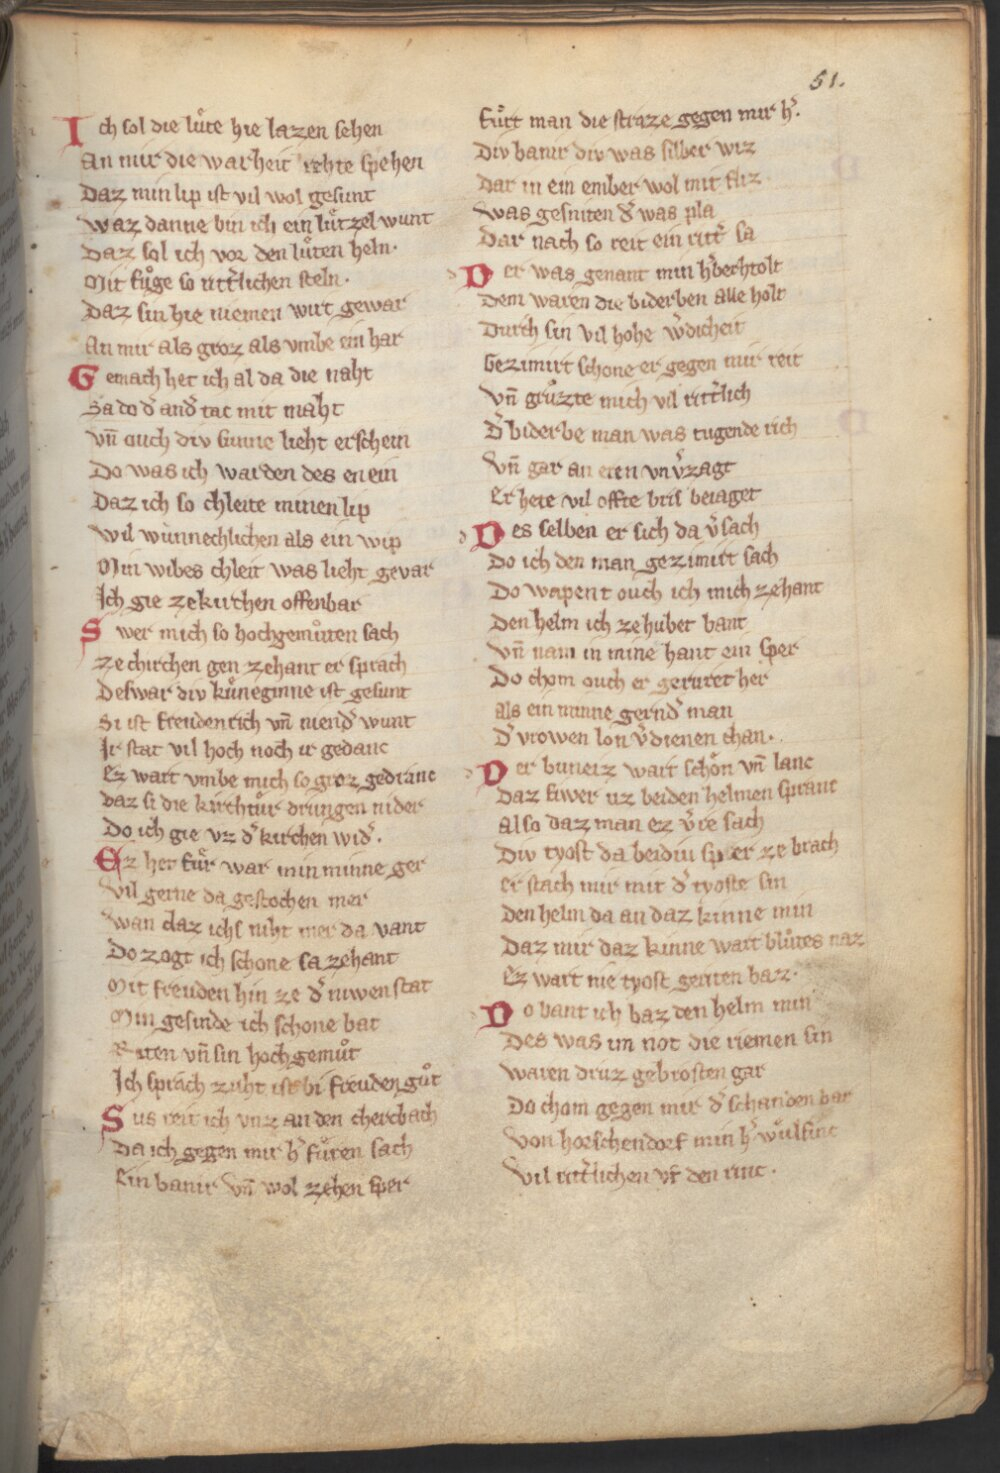 51.
Ich sol die luͤte hie lazen sehen
An mir die warheit rehte spehen
Daz min lip ist vil wol gesunt
Waz danne bin ich ein luͤtzel wunt
Daz sol ich vor den luͤten heln.
Mit fuͦge so ritt̄lichen steln.
Daz sin hie niemen wirt gewar
An mir als groz als vmbe ein har
Gemach het ich al da die naht
Sa do d̄ and̄ tac mit maht
Vn̄ ouch div sunne lieht erschein
Do was ich worden des en ein
Daz ich so chleite minen lip
Wil wunnechlichen als ein wip
Min wibes chleit was lieht gevar
Ich gie zekirchen offenbar
Swer mich so hochgemuͦten sach
Ze chirchen gen zehant er sprach
Deswar div kuͤneginne ist gesunt
Si ist freuden rich vn̄ niend̄ wunt
Ir stat vil hoch noch ir gedanc
Ez wart vmbe mich so groz gedranc
Daz si die kirchtuͤr drungen nider
Do ich gie vz d̄ kirchen wid̄.
Ez het fuͤr war min minne ger
Vil gerne da gestochen mer
Wan daz ichs niht mer da vant
Do zogt ich schone sa zehant
Mit freuden hin ze d̄ niwen stat
Min gesinde ich schone bat
Riten vn̄ sin hoch gemuͦt
Ich sprach zuht ist bi freuden guͦt
Sus reit ich vnz an den cherebach
Da ich gegen mir h̄ fuͤren sach
Ein banir vn̄ wol zehen sper
Fuͦrt man die straze gegen mir h̄.
Div banir div was silber wiz
Dar in ein ember wol mit fliz
Was gesniten d̄ was pla
Dar nach so reit ein ritt̄ sa
Der was genant min h̄ bechtolt
Dem waren die biderben alle holt
Durch sin vil hohe w̄dicheit
Gezimirt schone er gegen mir reit
Vn̄ gruͦzte mich vil ritt̄lich
D̄ biderbe man was tugende rich
Vn̄ gar an eren vnv̄zagt
Er hete vil offte bris beiaget
Des selben er sich da v̄sach
Do ich den man gezimirt sach
Do wapent ouch ich mich zehant
Den helm ich ze huber bant
Vn̄ nam in mine hant ein sper
Do chom ouch er geruret her
Als ein minne gernd̄ man
D̄ vrowen lon v̄dienen chan.
Der buneiz wart schoͤn vn̄ lanc
Daz fiwer uz beiden helmen spranc
Also daz man ez v̄re sach
Div tyost da beidiu sper ze brach
Er stach mir mit d̄ tyoste sin
Den helm da an daz kinne min
Daz mir daz kinne wart bluͦtes naz
Ez wart nie tyost geriten baz.
Do bant ich baz den helm min
Des was im not die riemen sin
Waren druz gebrosten gar
Do chom gegen mir d̄ schanden bar
Von horschendorf min h̄ wuͤlfinc
Vil ritt̄lichen vf den rinc.